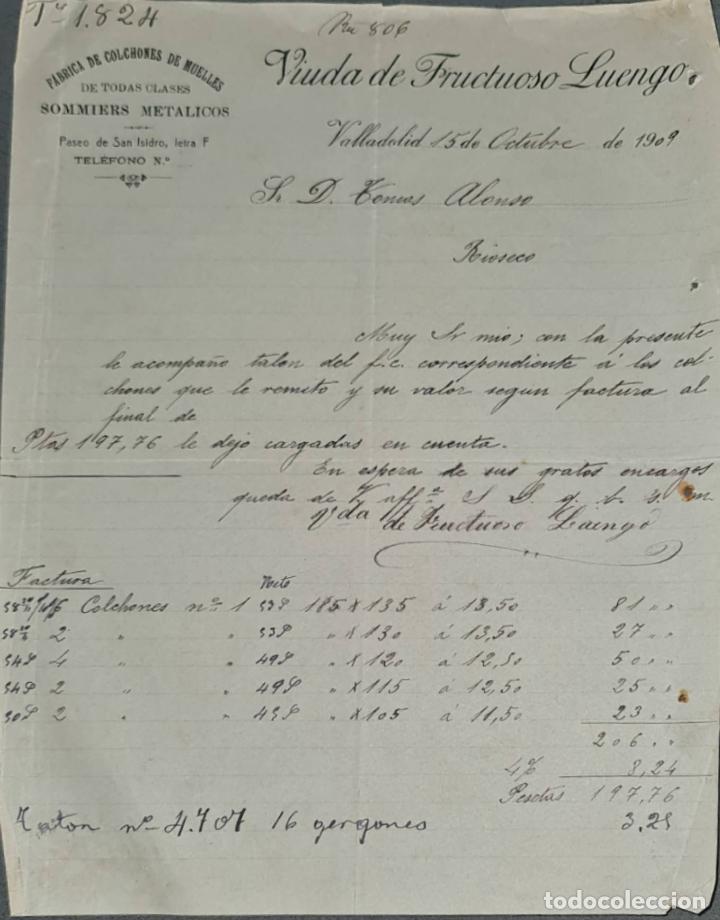 Tº 1.824
Ru 806
FÁBRICA DE COLCHONES DE MUELLES
DE TODAS CLASES
SOMMIERS METALICOS
Paseo de San Isidro, letra F
TELÉFONO N.º
Viuda de Fructuoso Luengo
Valladolid 15 de Octubre de 1909
Sr D. Tomas Alonso
Rioseco
Muy Sr mio; con la presente
le acompaño talon del f.c. correspondiente á los col-
chones que le remito y su valor segun factura al
final de
Ptas 197,76 le dejo cargadas en cuenta.
En espera de sus gratos encargos
queda de V affº S S q. b. s. m.
Vda de Fructuoso Luengo
Factura Neto
6 Colchones nº 1 53 185 x 135 á 13,50 81 " "
2 " " 53 " x 130 á 13,50 27 " "
54 4 " " 49 " x 120 á 12,50 50 " "
54 2 " " 49 " x 115 á 12,50 25 " "
50 2 " " 45 " x 105 á 11,50 23 " "
206 " "
4% 8,24
Pesetas 197,76
Talon nº 4.707 16 gergones 3,25
todocoleccion